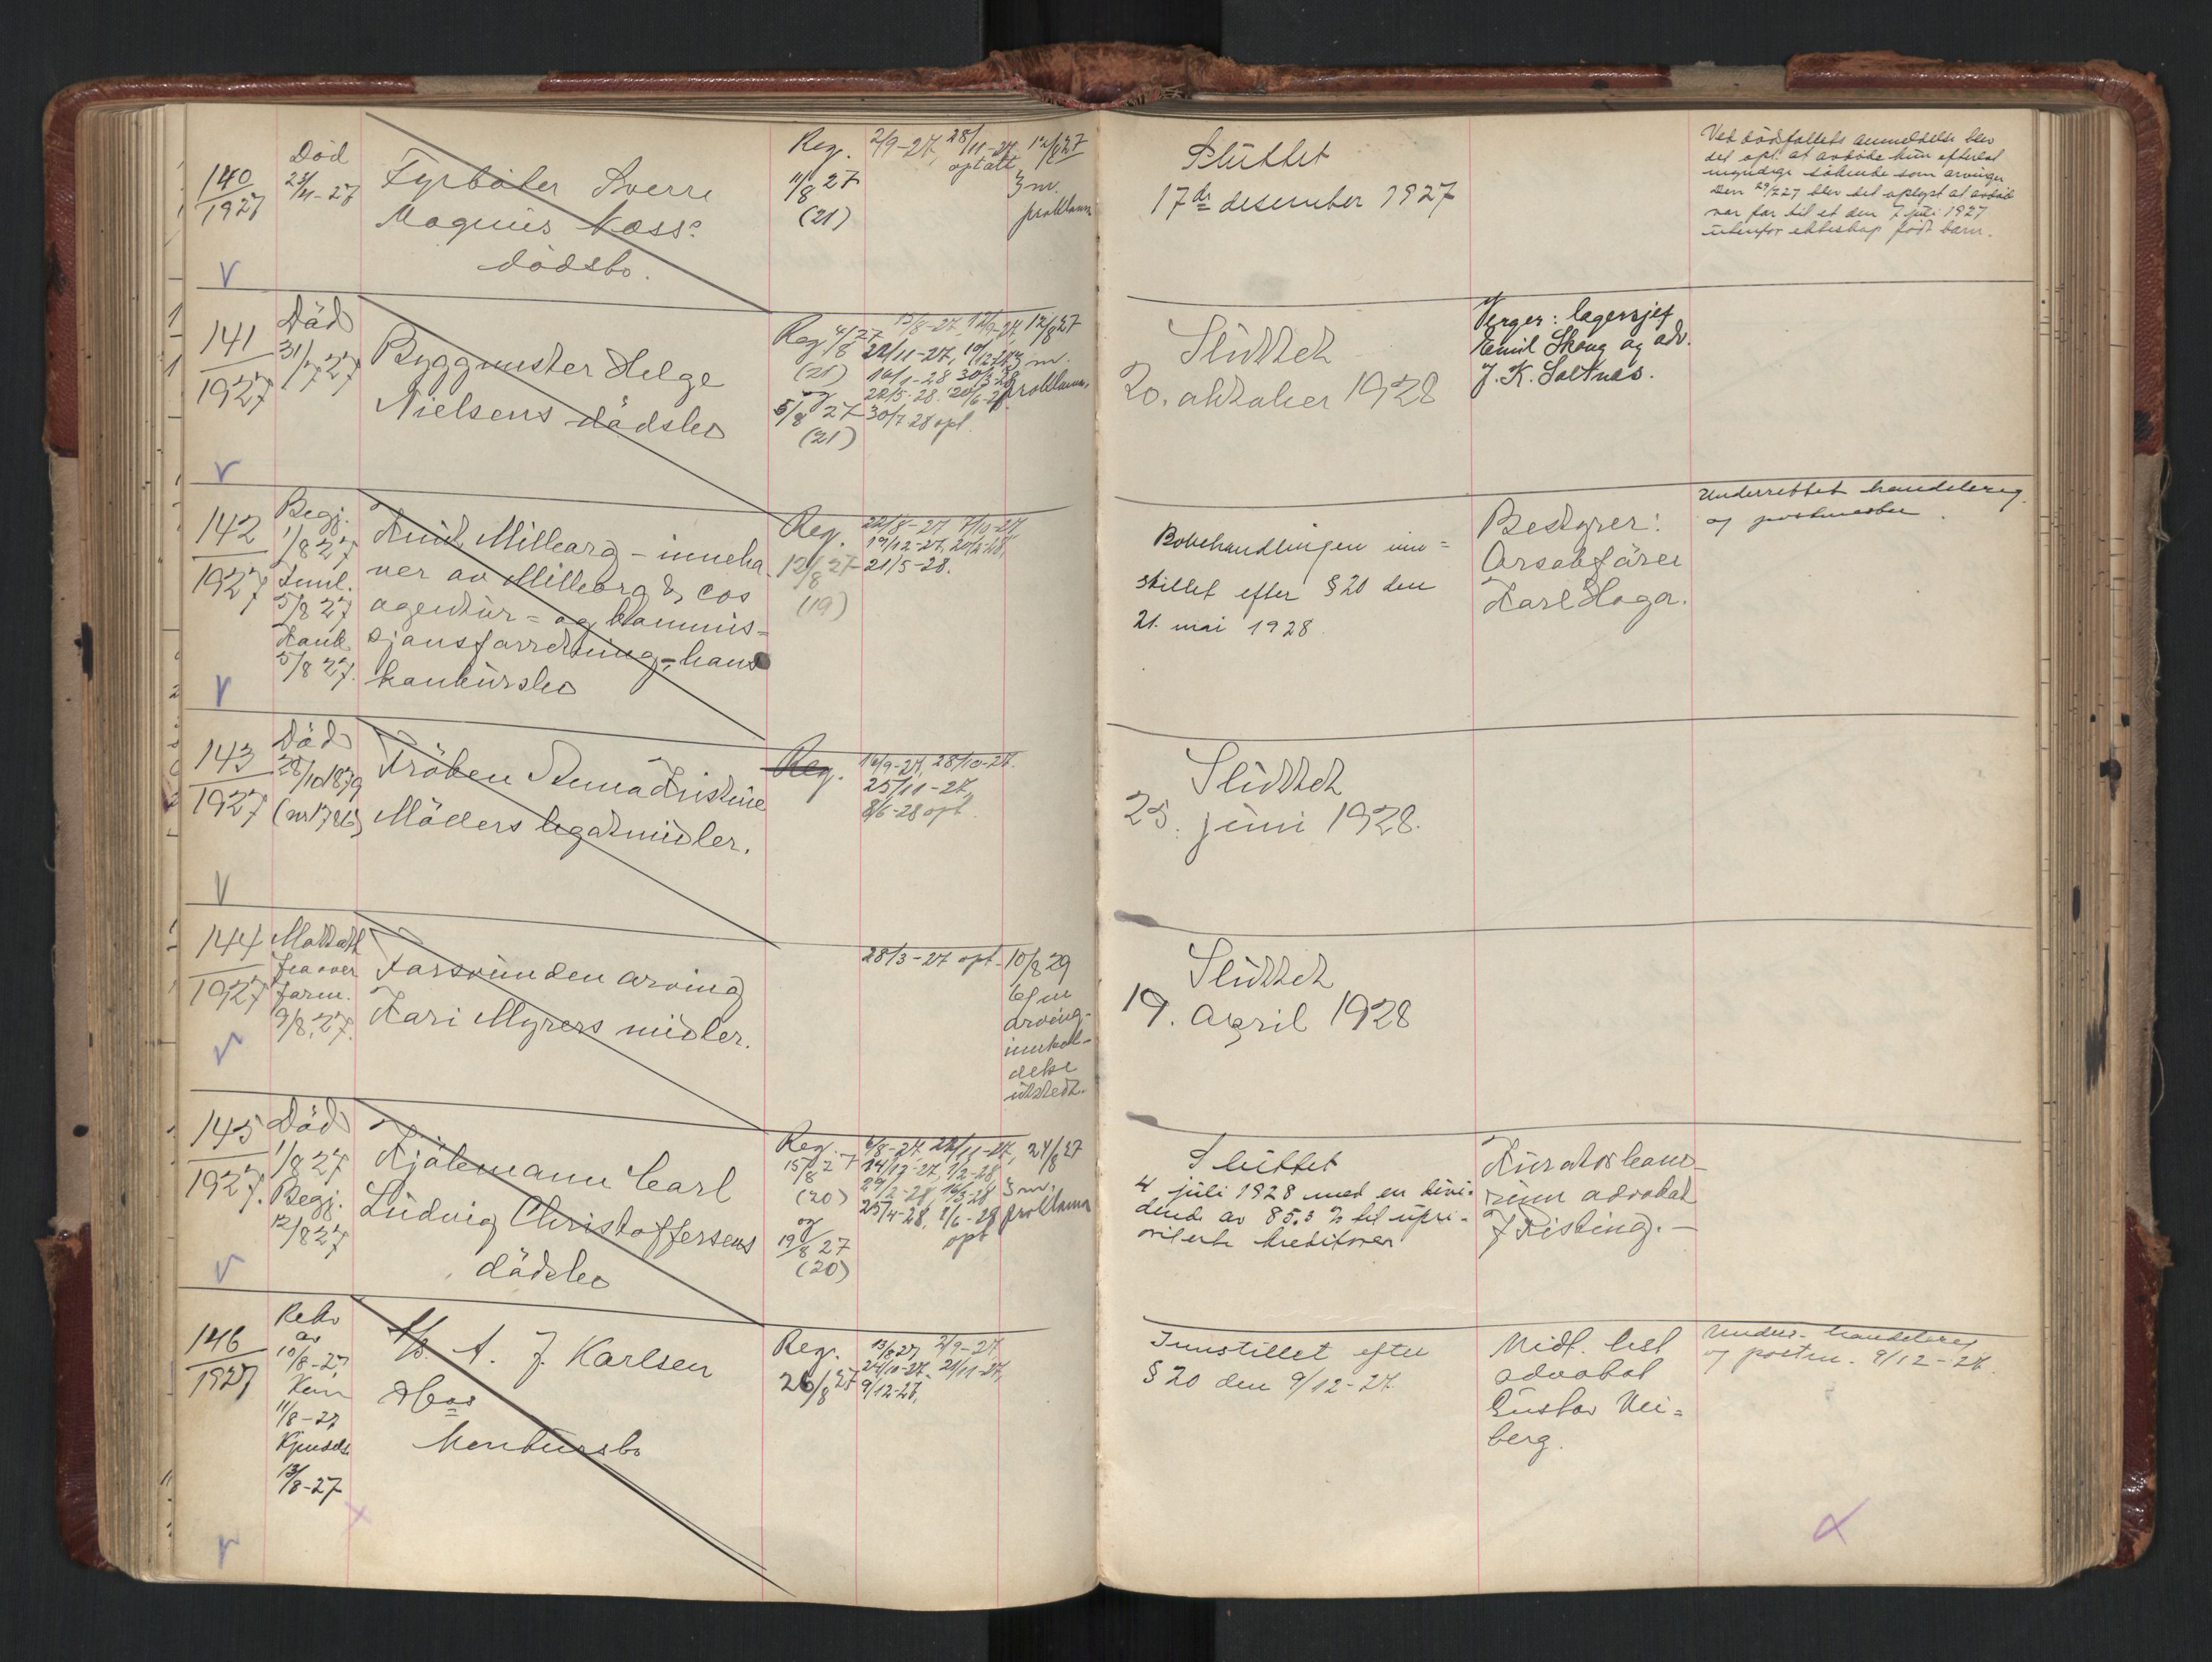 140
1927
Død
23/4-27
Fyrbøter Sverre
Magnus Næss'
dødsbo.
Reg.
11/8 27
(21)
2/9-27, 28/11-27
opt att
12/8 27
3 m.
proklama
Sluttet
17de desember 1927
Ved dødsfallets anmeldelse blev
det opl. at avdøde kun efterlot
myndige søskende som arvinger
Den 29/7 27 blev det oplyst at avdøde
var far til et den 7 juli 1927
utenfor ekteskap født barn.
141
1927
Død
31/7 27
Byggmester Helge
Nielsens dødsbo
Reg. 4/8 27
(21)
og
5/8 27
(21)
15/8-27, 12/9-27,
22/11-27, 19/12-27,
16/1-28 30/3-28
22/5-28, 20/6-28
30/7-28 opl.
12/8 27
3 m.
proklama.
Sluttet
20. oktober 1928
Verger: lagersjef
Emil Skoug og adv.
J. K. Saltnes.
142
1927
Begj.
1/8 27
Innl.
5/8 27
Konk.
5/8 27.
Knut Milleorg - inneha
ver av Milleborg & Cos
agentur= og kommis=
sjonsforretning, - hans
konkursbo
Reg.
12/8 27
(19)
22/8-27 7/10-27
19/12-27, 20/2-28,
21/5-28.
Bobehandlingen inn=
stillet efter § 20 den
21. mai 1928.
Bestyrer:
Orsakfører
Karl Haga.
Underrettet handelsreg.
og postmester
143
1927
Død
28/10 1879
Frøken Anna Kristine
Møllers legatmidler.
Reg.
16/9-27, 28/10-27.
25/11-27,
8/6-28 opt.
Sluttet
25. juni 1928.
144
1927
Mottatt
fra over
form.
9/8.27.
Forsvunden arving
Kari Myrers midler.
28/3-27 opt.
10/8 29
6 m
arving-
innkal-
delse
utstedt.
Sluttet
19. april 1928
145
1927.
Død
1/8 27
Begj.
12/8 27
Kjølemann Carl
Ludvig Christoffersens
dødsbo
Reg.
15/8 27
(20)
og
19/8 27
(20)
6/8-27, 22/11-27,
14/12-27, 1/2-28,
29/2-28, 16/3-28,
25/4-28, 1/6-28
opt
24/8 27
3 m.
proklama
Sluttet
4 juli 1928 med en divi-
dende av 85.3 % til upri-
oriterte kreditorer
Kurator konr
advokat
J Risting. -
146
1927
Rekv
av
10/8-27
Kon
11/8-27
Kjendels
13/8-27
A/s. A. J. Karlsen
& Co's
konkursbo
Reg.
26/8 27
13/8 27, 2/9-27
24/10-27. 21/11-27,
9/12-27,
Innstillet efter
§ 20 den 9/12-27.
Midl. best
advokat
Gustav Vei=
berg.
Underr. handelsreg
og postm. 9/12-27.